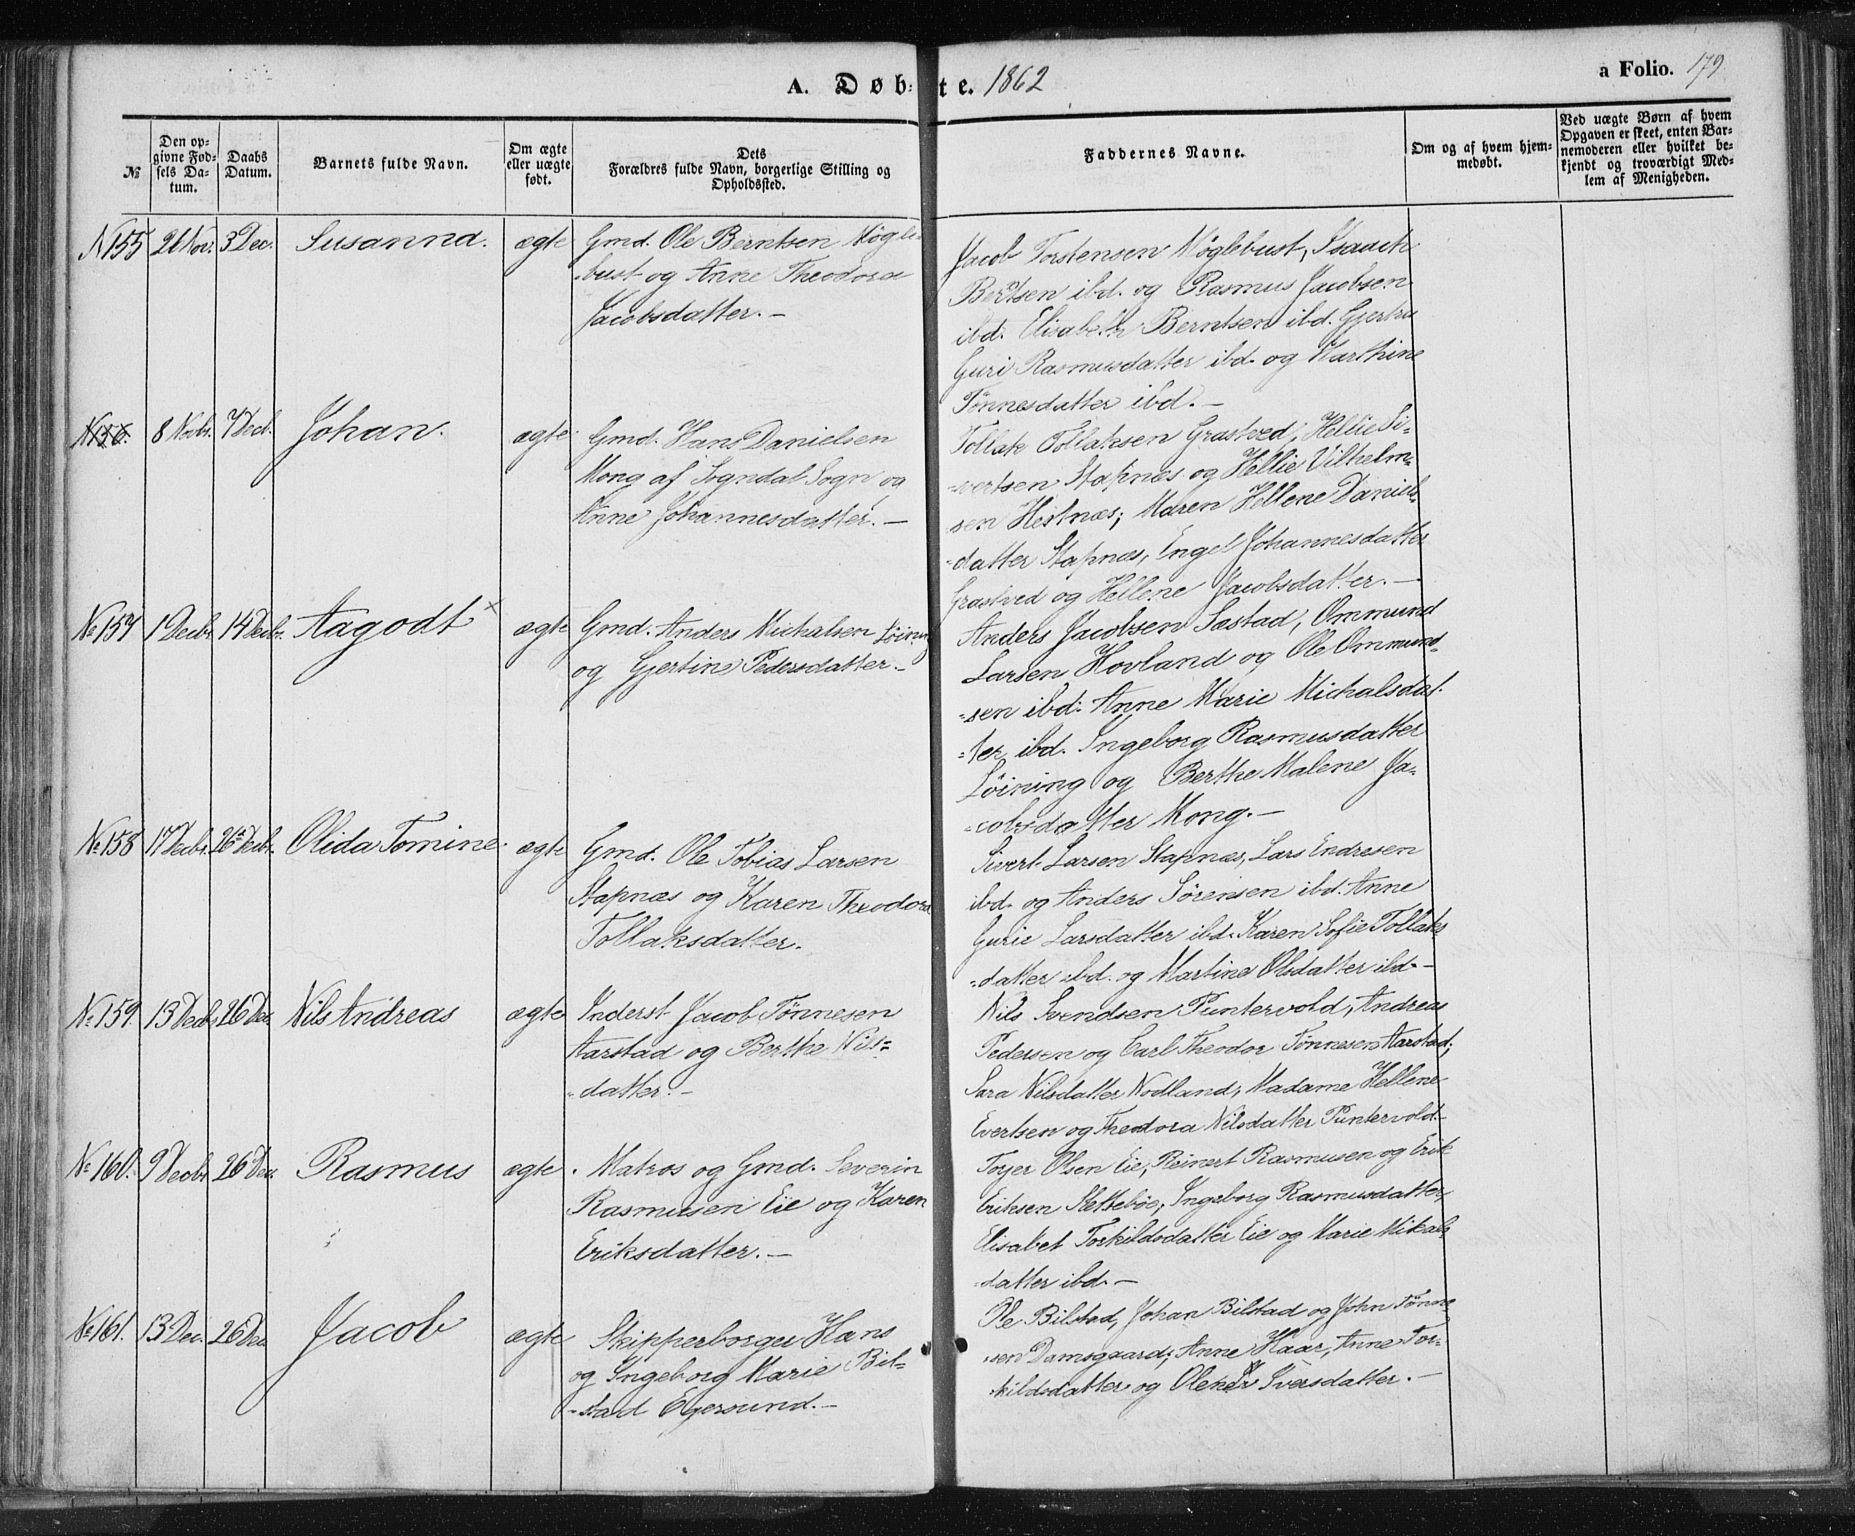 A. Døbte. 1862
a Folio. 179
№
Den op-
givne Fød-
sels Da-
tum.
Daabs
Datum.
Barnets fulde Navn.
Om ægte
eller uægte
født.
Dets
Forældres fulde Navn, borgerlige Stilling og
Opholdssted.
Faddernes Navne.
Om og af hvem hjem-
medøbt.
Ved uægte Børn af hvem
Opgaven er skeet, enten Bar-
nemoderen eller hvilket be-
kjendt og troværdigt Med-
lem af Menigheden.
N 155 26 Nov. 3 Dec. Susanna. ægte Gmd. Ole Berntsen Nögle-
bust og Anne Theodora
Jacobsdatter. —
Jacob Torstensen Nöglebust, Isaach
Bertsen ibd. og Rasmus Jacobsen
ibd. Elisabeth Berntsen ibd.
Guri Rasmusdatter ibd. og Marthine
Tönnesdatter ibd. —
N 156. 8 Novbr. 7 Decb. Johan. ægte Gmd. Hans Danielsen
Mong af Sogndal Sogn og
Anne Johannesdatter. —
Tollak Tollaksen Grastved, Hellie Si-
-vertsen Stapnæs og Hellie Vilhelm-
sen Hestnæs; Maren Hellene Daniels-
-datter Stapnæs, Engel Johannesdatter
Grastved og Hellene Jacobsdatter. —
No 157 1 Decbr. 14 Decbr. Aagodt x ægte Gmd. Anders Michalsen Löining
og Gjertine Pedersdatter. —
Anders Jacobsen Sæstad, Ommund
Larsen Hovland og Ole Ommund-
-sen ibd. Anne Marie Michalsdat-
-ter ibd. Ingeborg Rasmusdatter
Löining og Berthe Malene Ja-
-cobsdatter Mong. —
No 158 17 Decbr. 26 Decbr. Olida Tomine. ægte Gmd. Ole Tobias Larsen
Stapnæs og Karen Theodora
Tollaksdatter.
Sivert Larsen Stapnæs, Lars Endresen
ibd. og Anders Sörensen ibd. Anne
Gurie Larsdatter ibd. Karen Sofie Tollaks
-datter ibd. og Martine Olsdatter ibd. —
No 159. 13 Decbr. 26 Dec. Nils Andreas ægte Inderst Jacob Tönnesen
Aarstad og Berthe Nils-
-datter. —
Nils Svendsen Puntervold, Andreas
Pedersen og Carl Theodor Tönnesen Aarstad;
Sara Nilsdatter Nodland; Madame Hellene
Evertsen og Theodora Nilsdatter Puntervold.
No 160. 9 Decbr. 26 Dec. Rasmus ægte. Matros og Gmd. Severin
Rasmusen Eie og Karen
Eriksdatter. —
Torger Olsen Eie, Reinert Rasmusen og Erik
Eriksen Slettebøe; Ingeborg Rasmusdatter,
Elisabet Torkildsdatter Eie og Marie Mikals
-datter ibd. —
No 161. 13 Dec. 26 Dec. Jacob ægte Skipperborger Hans
og Ingeborg Marie Bil-
-stad Egersund. —
Ole Bilstad, Johan Bilstad og John Tönne-
-sen Damsgaard; Anne Haar, Anne Tor-
-kildsdatter og Olene Iversdatter. —